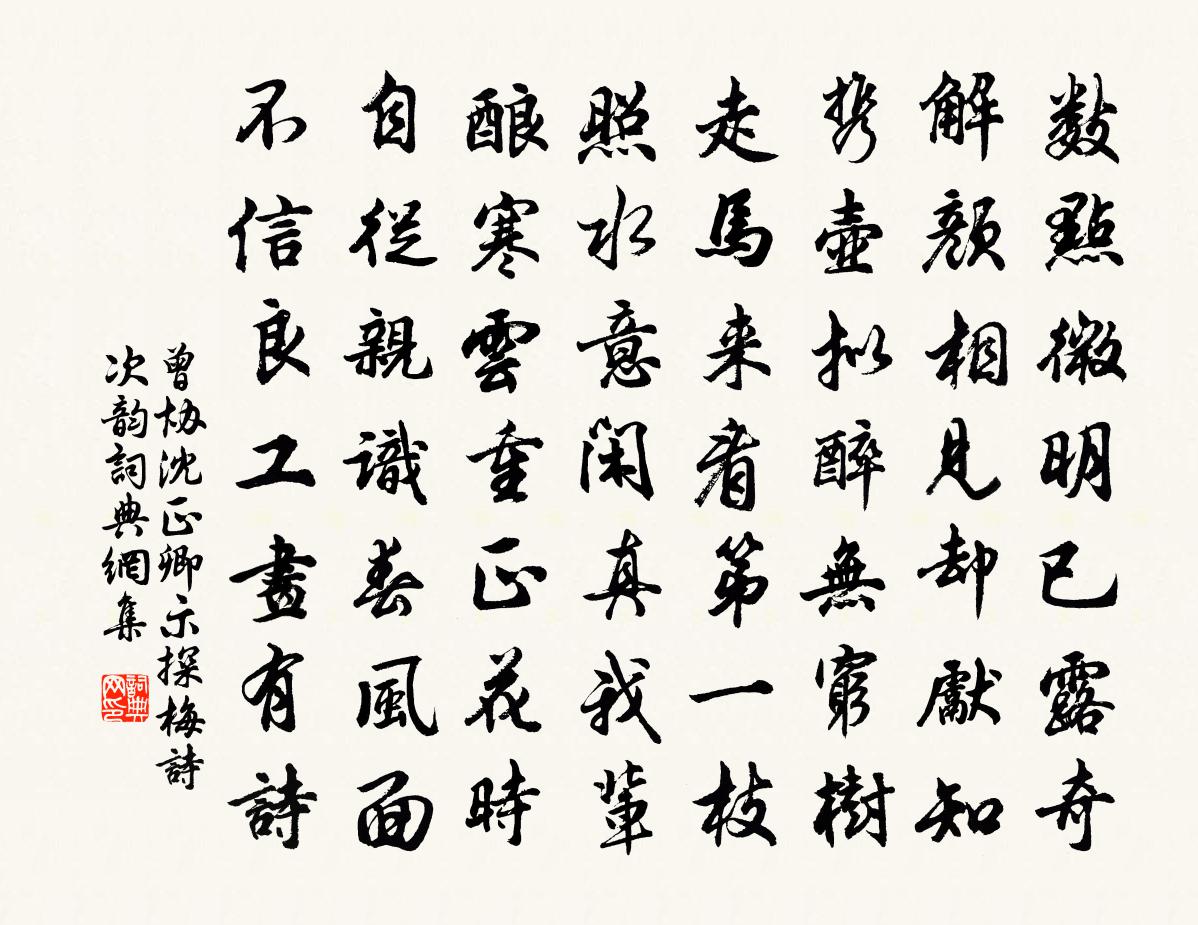 數點微明已露奇
解顏相見却獻知
携壺拟醉無窮樹
走馬来看第一枝
照水意閑真我輩
酿寒雲重正花時
自從親識春風面
不信良工畫有詩
曾協沈正卿示探梅詩
次韵詞典網集
詞典网印